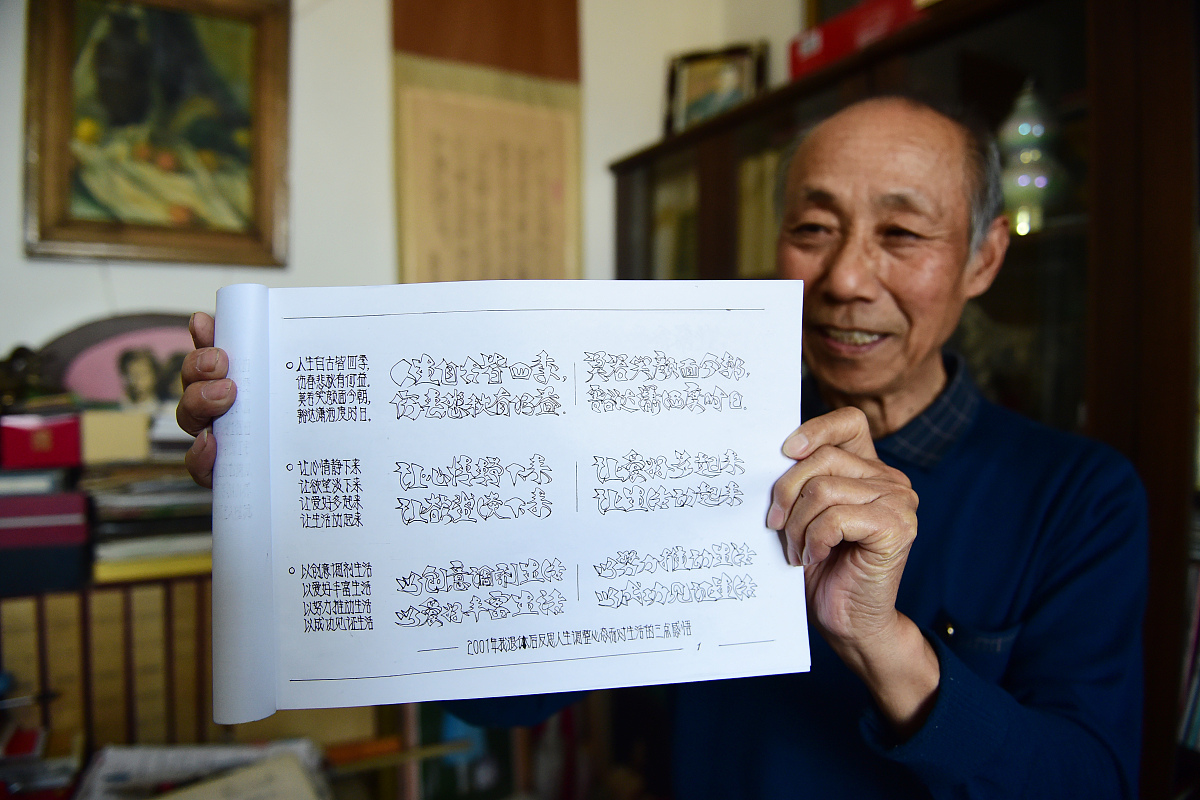 人生自古皆四季,
伤春悲秋有何益.
莫若笑颜面今朝,
豁达潇洒度时日.
人生自古皆四季,
伤春悲秋有何益.
莫若笑颜面今朝,
豁达潇洒度时日.
让心情静下来
让欲望淡下来
让爱好多起来
让生活动起来
让心情静下来
让欲望淡下来
让爱好多起来
让生活动起来
以创意调剂生活
以爱好丰富生活
以努力推动生活
以成功见证生活
以创意调剂生活
以爱好丰富生活
以努力推动生活
以成功见证生活
2001年我退休后反思人生调整心态面对生活的三条感悟
1